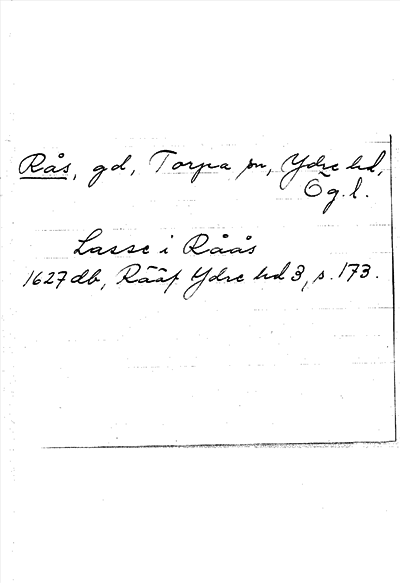 Rås, gd, Torpa sn, Ydre hd,
Ög.l.
Lasse i Råås
1627 db, Rääf Ydre hd 3, s. 173.